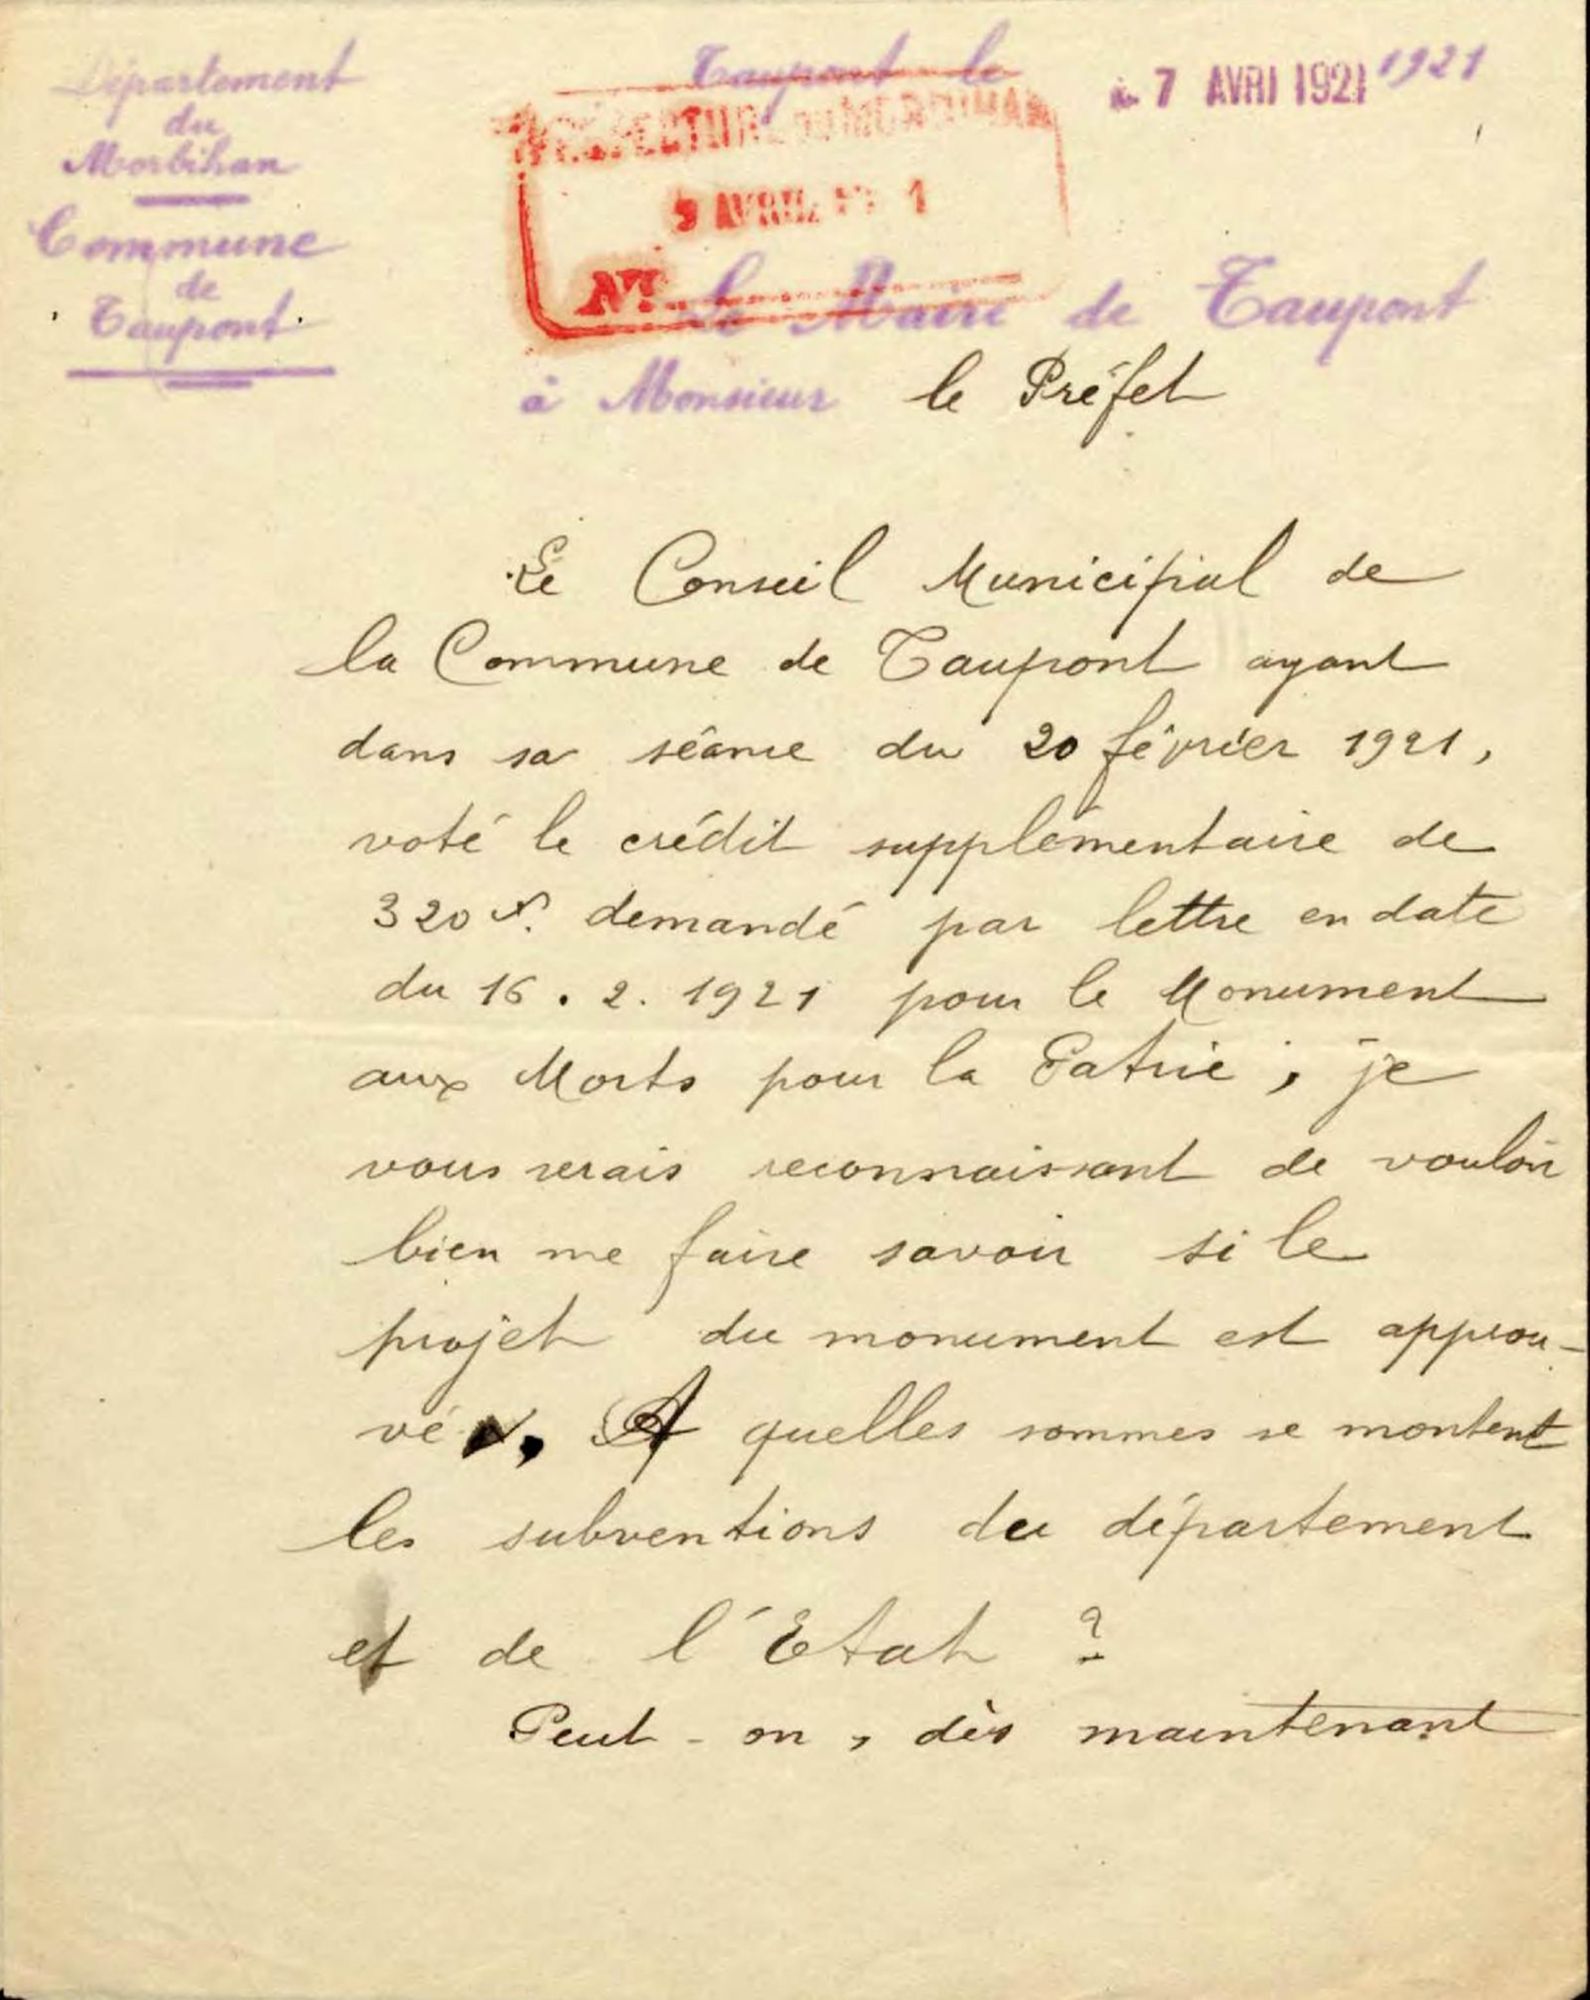 Département
du
Morbihan
Commune
de
Taupont
Taupont le 7 AVRI 1921 1921
PRÉFECTURE DU MORBIHAN
9 AVRIL 1
N°
Le Maire de Taupont
à Monsieur le Préfet
Le Conseil Municipal de
la Commune de Taupont ayant
dans sa séance du 20 février 1921,
voté le crédit supplémentaire de
320 f. demandé par lettre en date
du 16.2.1921 pour le Monument
aux Morts pour la Patrie, je
vous serais reconnaissant de vouloir
bien me faire savoir si le
projet du monument est approu-
vé. A quelles sommes se montent
les subventions du département
et de l'Etat ?
Peut-on, dès maintenant